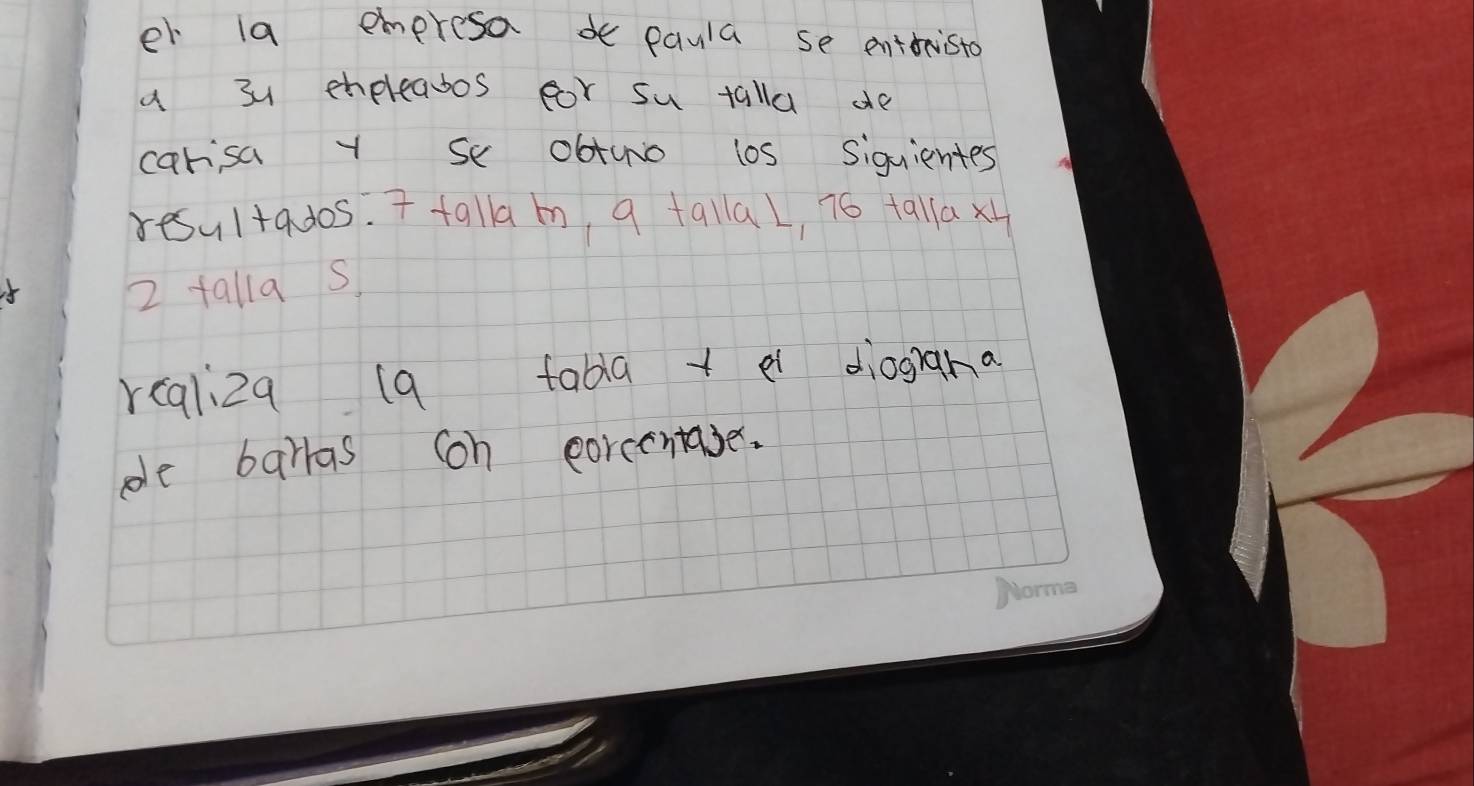 en la empresa de paula se entrevisto
a 34 empleados por su talla de
camisa y se obtuvo los siguientes
resultados: 7 talla m, 9 talla L, 16 talla XL y
2 talla S.
realiza la tabla y el diograma
de barras con porcentaje.
Norma